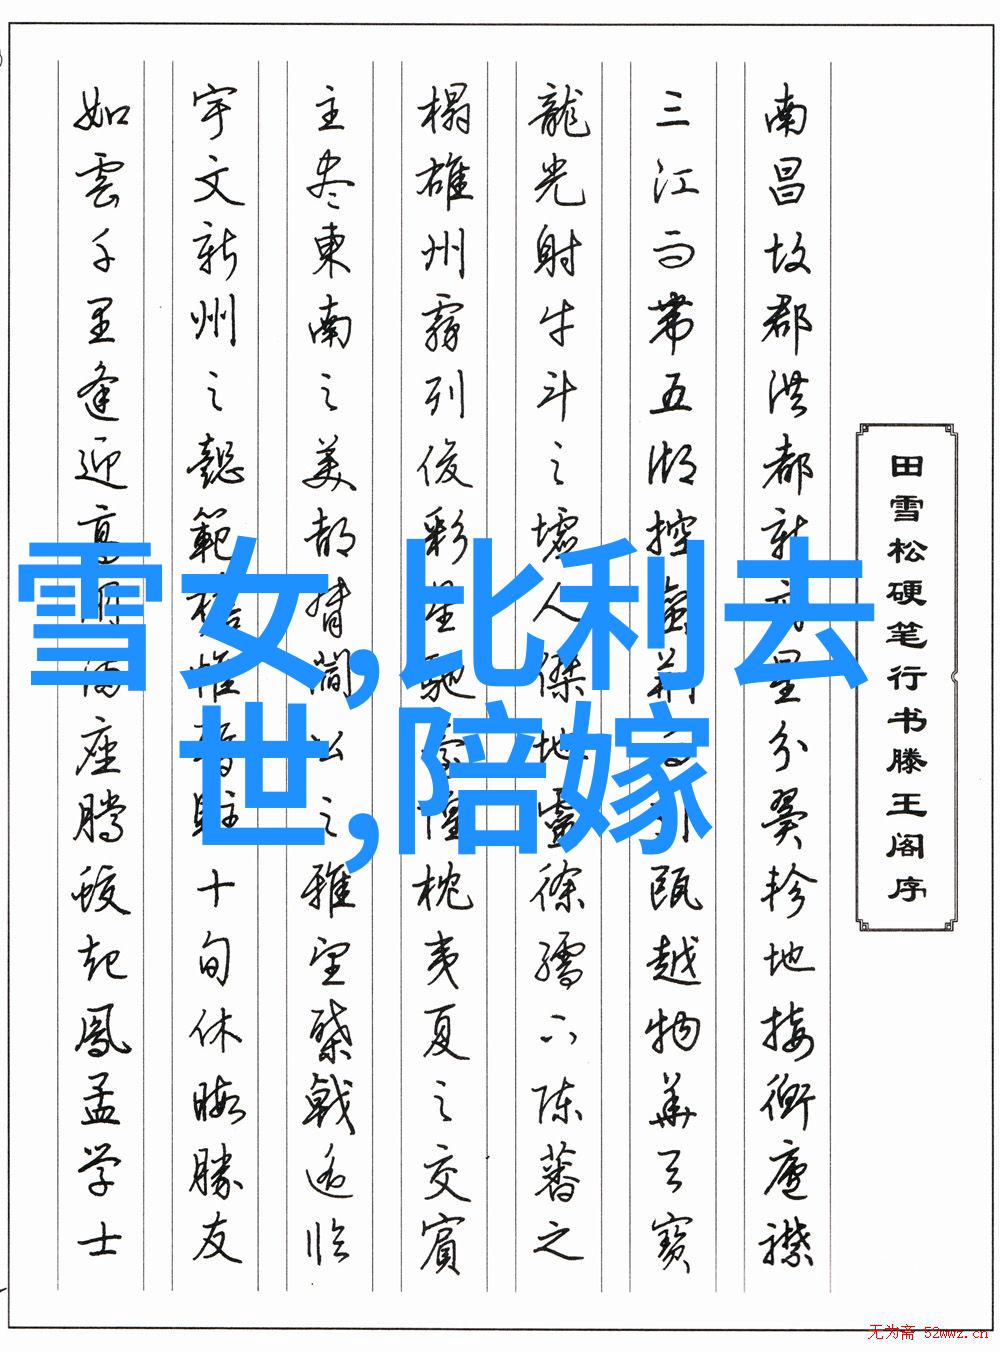 田雪松硬笔行书滕王阁序
南昌故郡洪都新府星分翼軫地接衡廬襟
三江而帶五湖控蠻荆而引甌越物華天寶
龍光射牛斗之墟人傑地靈徐孺下陈蕃之
榻雄州霧列俊彩星馳臺隍枕夷夏之交賓
主尽東南之美都督閻公之雅望棨戟遥临
宇文新州之懿範襜帷暫駐十旬休暇勝友
如雲千里逢迎高朋满座騰蛟起鳳孟学士
雪女,比利去
世,陪嫁
无为斋 52wwz.cn